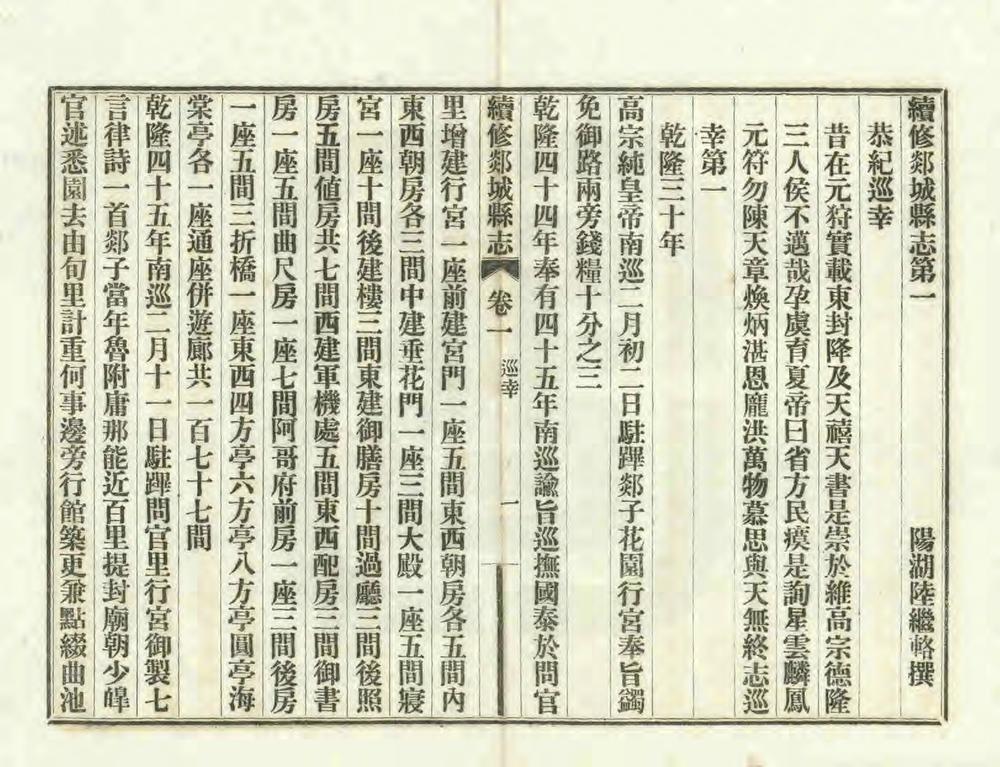 續修郯城縣志第一　陽湖陸繼輅撰
恭紀巡幸
昔在元狩實載東封降及天禧天書是崇於維高宗德隆
三人侯不邁哉孕虞育夏帝曰省方民瘼是詢星雲麟鳳
元符勿陳天章煥炳湛恩龐洪萬物慕思與天無終志巡
幸第一
乾隆三十年
高宗純皇帝南巡二月初二日駐蹕郯子花園行宮奉旨蠲
免御路兩旁錢糧十分之三
乾隆四十四年奉有四十五年南巡諭旨巡撫國泰於問官
續修郯城縣志 卷一 巡幸 一
里增建行宮一座前建宮門一座五間東西朝房各五間內
東西朝房各三間中建垂花門一座三間大殿一座五間寢
宮一座十間後建樓三間東建御膳房十間過廳三間後照
房五間值房共七間西建軍機處五間東西配房三間御書
房一座五間曲尺房一座七間阿哥府前房一座三間後房
一座五間三折橋一座東西四方亭六方亭八方亭圓亭海
棠亭各一座通座併遊廊共一百七十七間
乾隆四十五年南巡二月十一日駐蹕問官里行宮御製七
言律詩一首郯子當年魯附庸那能近百里提封廟朝少皞
官述悉園去由旬里計重何事邊旁行館築更兼點綴曲池